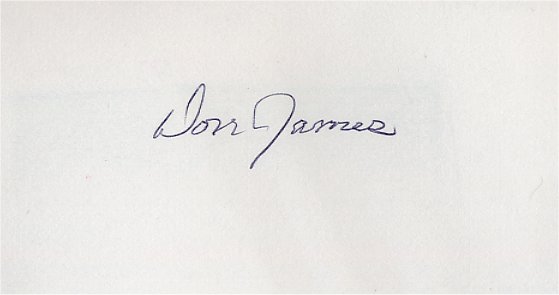 Don James